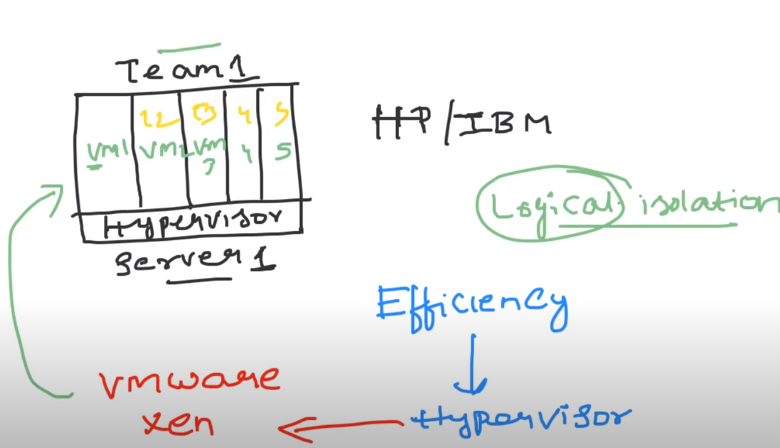 Team 1
2 3 4 5
VM1 VM2 VM 4 5
3
Hypervisor
Server 1
HP/IBM
Logical isolation
Efficiency
Hypervisor
VMware
xen